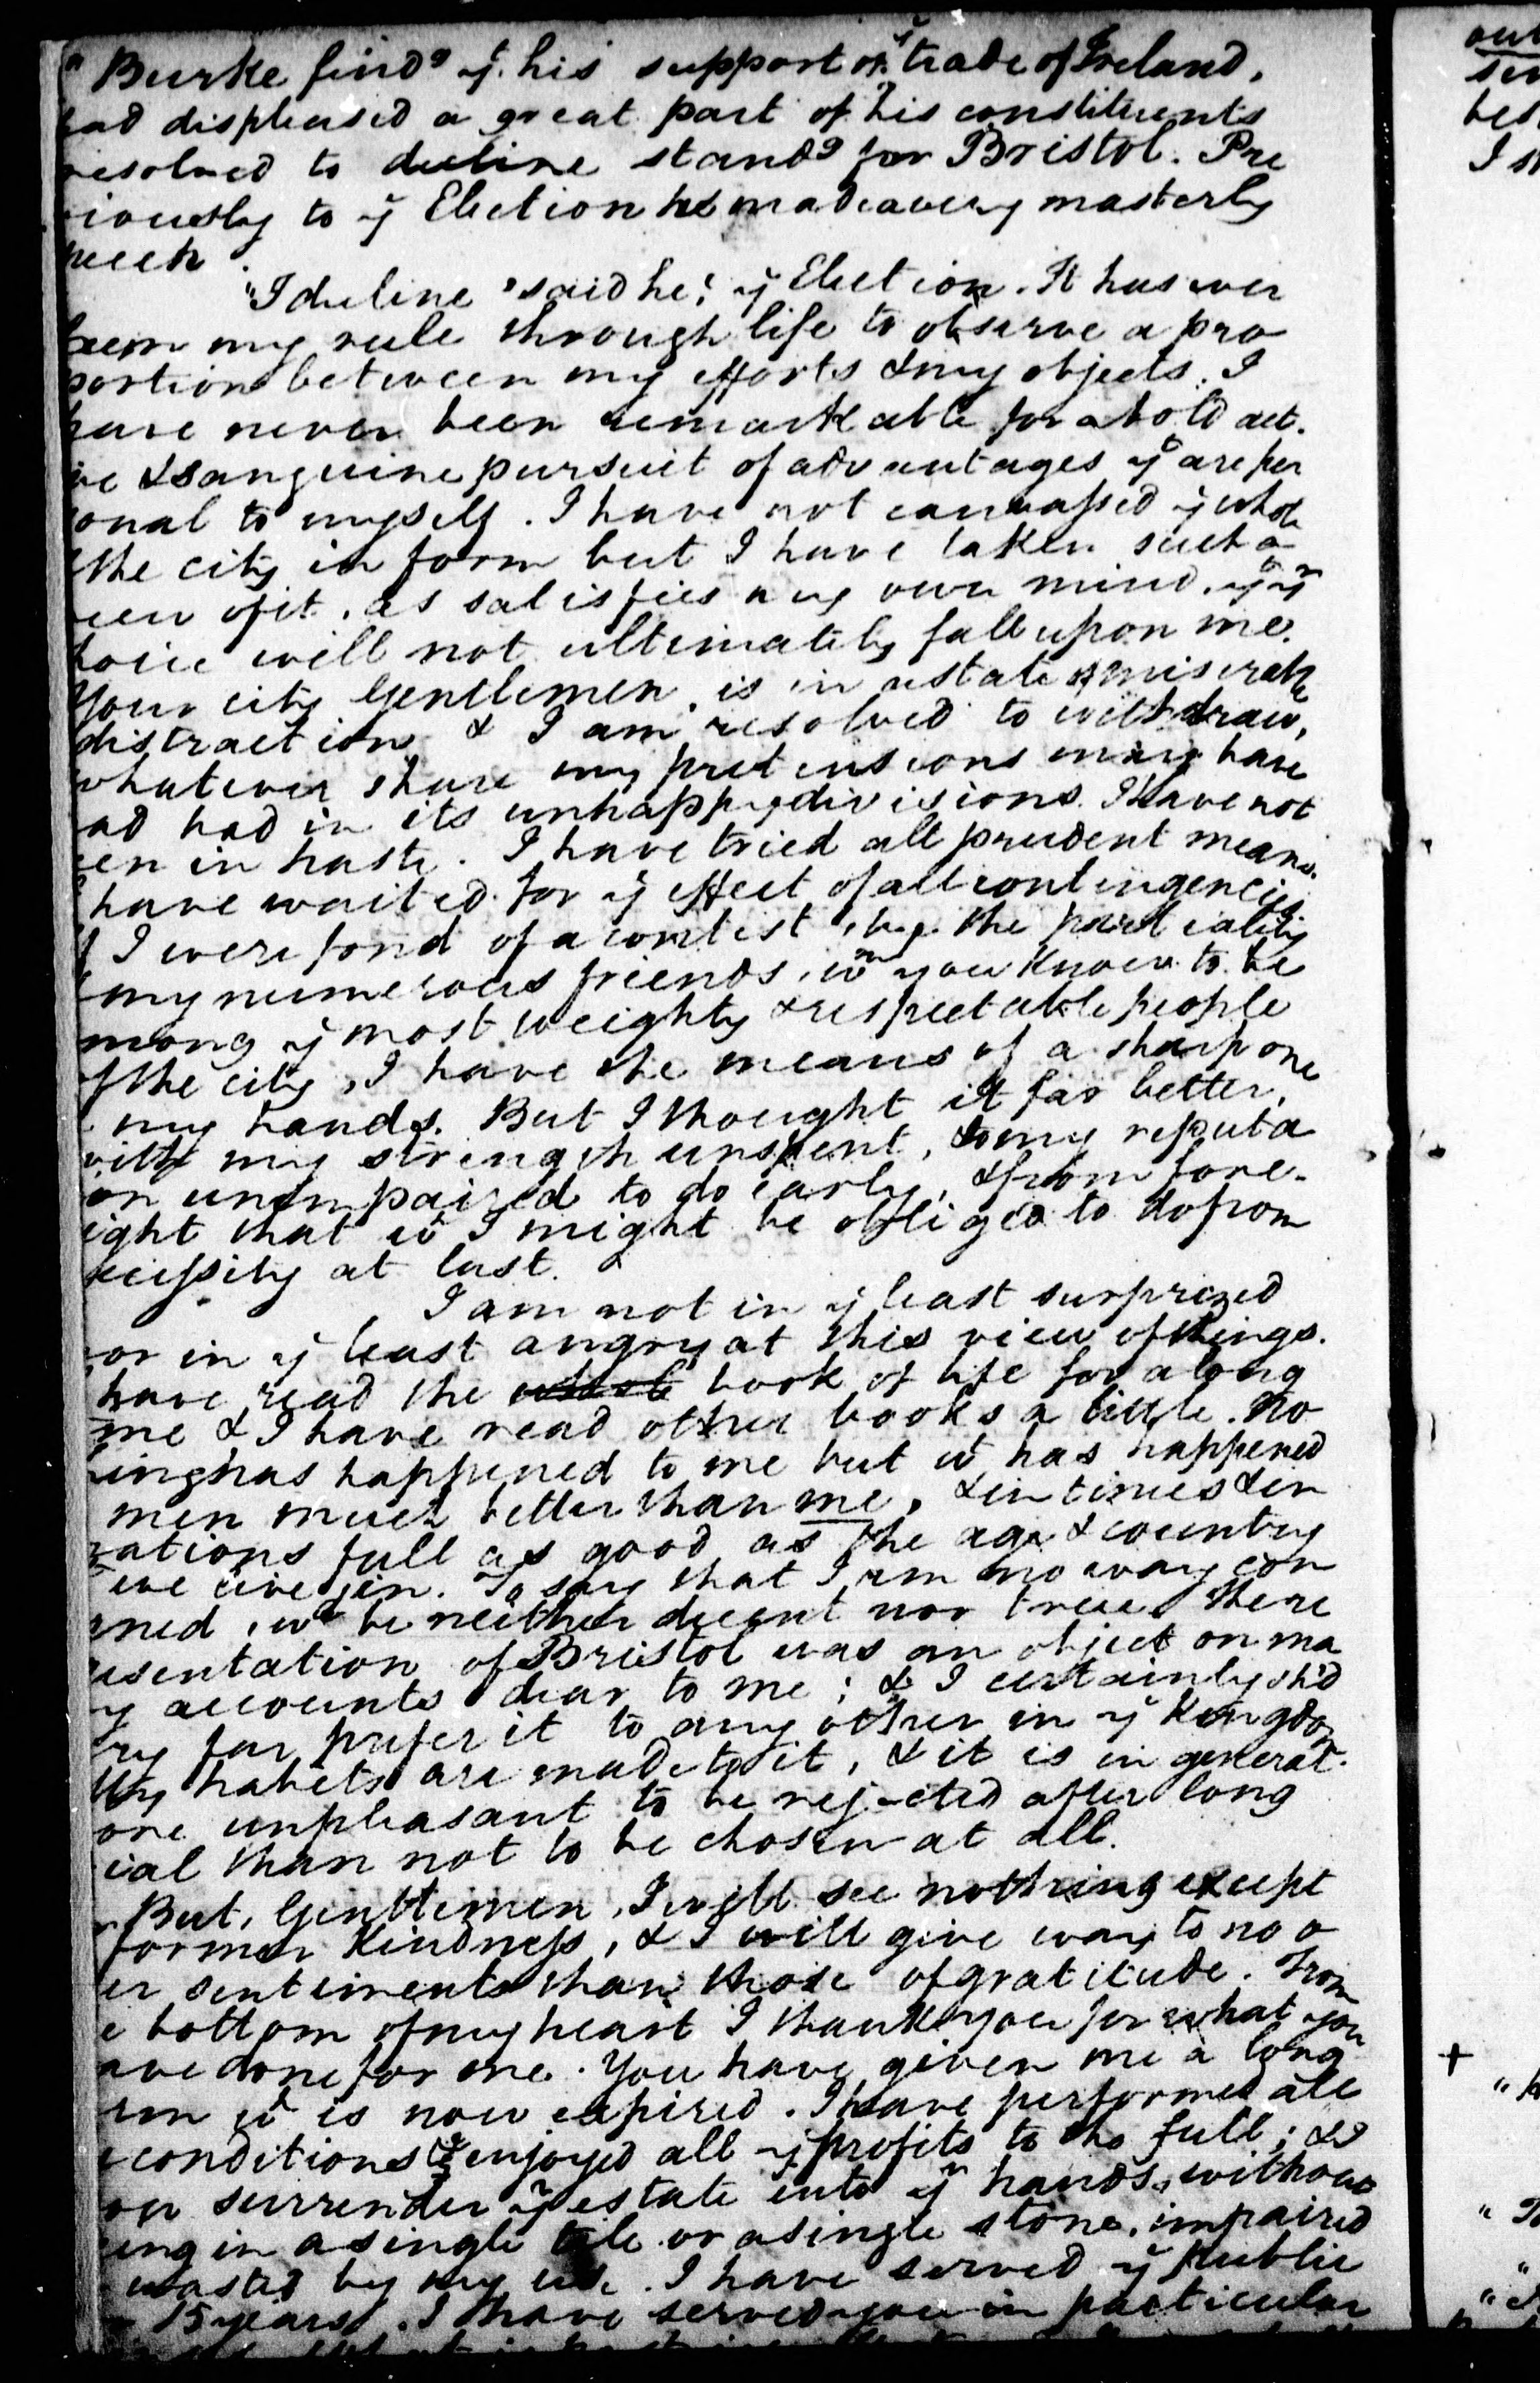 " Burke find^g y^t his support of y^e trade of Ireland,
had displeased a great part of his constituents
resolved to decline stand^g for Bristol. Pre
viously to y^e Election he made a very masterly
peech.
"I decline" said he, "y^e Election. It has ever
been my rule through life to observe a pro
portion between my efforts & my objects. I
have never been remarkable for a bold act.
ive & sanguine pursuit of advantages y^t are per
onal to myself. I have not canvassed y^e whole
the city in form but I have taken such a
iew of it, as satisfies my own mind, y^t y^r
hoice will not ultimately fall upon me.
Your city Gentlemen, is in a state of miserable
distraction & I am resolved to withdraw,
whatever share my pretensions may have
ad had in its unhappy divisions. I have not
een in haste. I have tried all prudent means.
have waited for y^e effect of all contingencies
If I were fond of a contest, by the partiality
my numerous friends, w^m you know to be
mong y^e most weighty & respectable people
of the city, I have the means of a sharp one
my hands. But I thought it far better,
with my strength unspent, & my reputa
on unimpaired to do early, & from fore-
ight that w^h I might be obliged to do from
ecessity at last.
I am not in y^e least surprized
or in y^e least angry at this view of things.
have read the book of life for a long
me & I have read other books a little. No
inghas happened to me but w^t has happened
men much better than me, & in times & in
nations full as good as the age & country
we live in. To say that I am no way con
rned, w^d be neither decent nor true. The re
esentation of Bristol was an object on ma
y accounts dear to me; & I certainly sh^d
ery far prefer it to any other in y^e Kingdom
My habits are made to it, & it is in general
ore unpleasant to be rejected after long
ial than not to be chosen at all.
But, Gentlemen, I will see nothing except
former Kindness, & I will give way to no o
er sentiments than those of gratitude. From
e bottom of my heart I thank you for what you
ave done for me. You have given me a long
erm w^h is now expired. I have performed all
e conditions & enjoyed all y^e profits to the full; & I
ow surrender y^r estate into y^r hands, without
eing in a single tile or a single stone, impaired
wasted by my use. I have served y^e Public
15 years. I have served you in particular
+